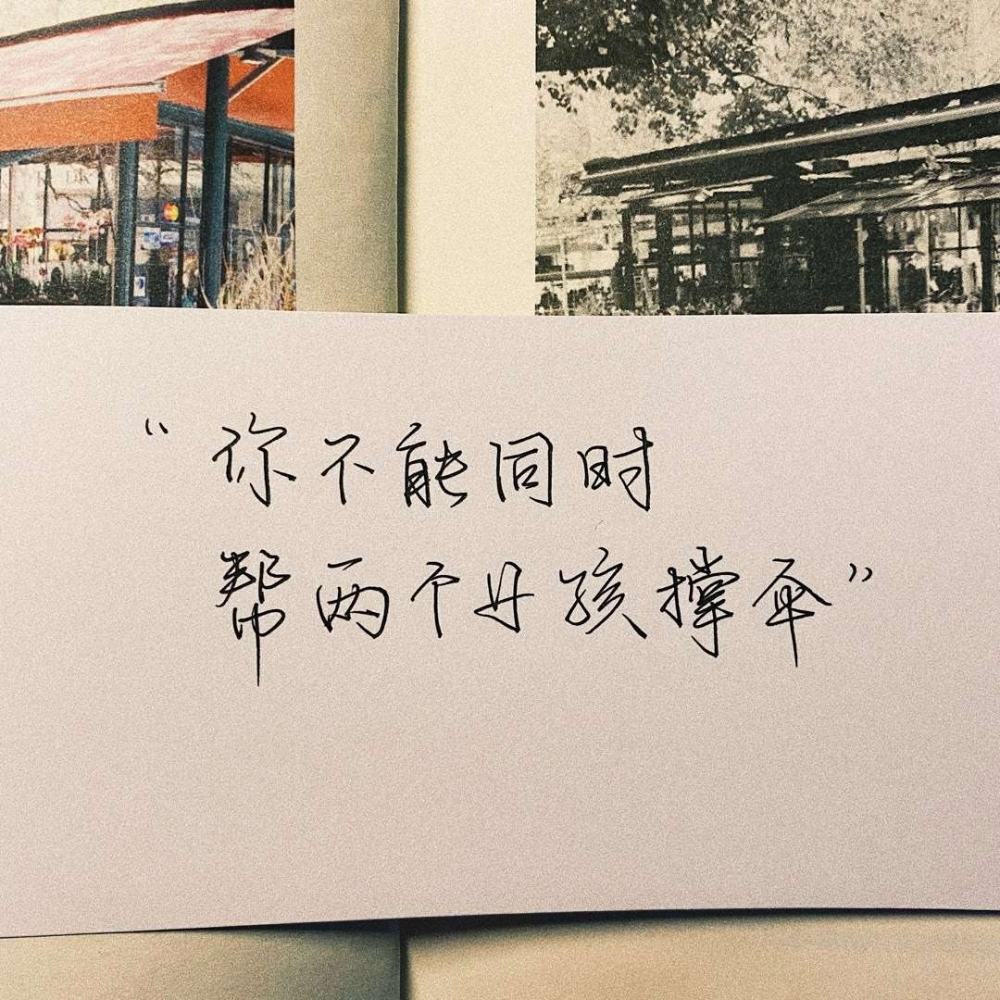 “你不能同时
帮两个女孩撑伞”